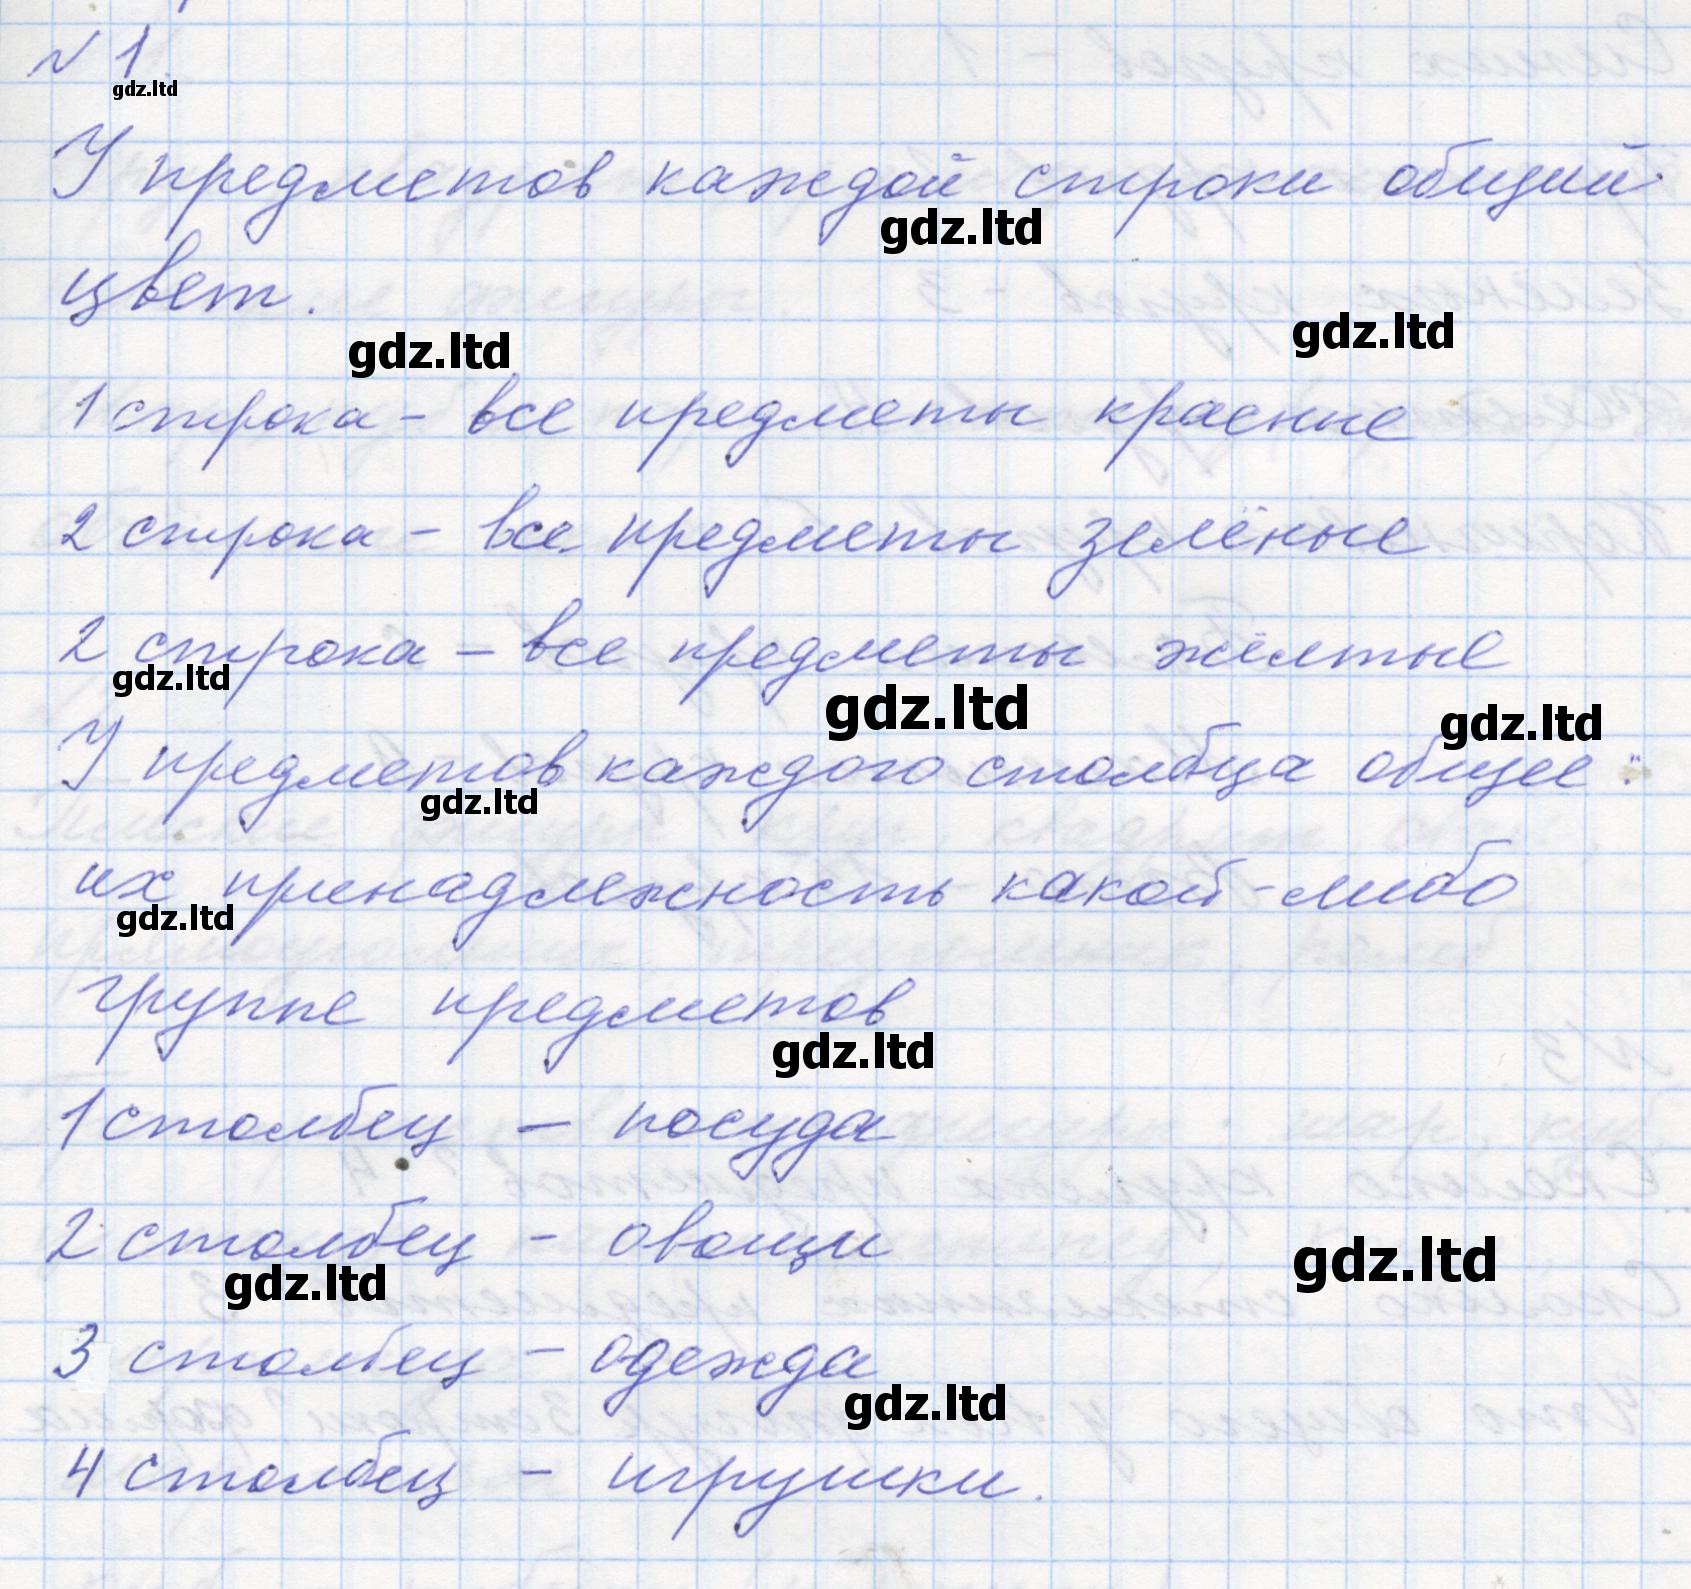 №1.
gdz.ltd
У предметов каждой строки общий
gdz.ltd
цвет.
gdz.ltd
gdz.ltd
1 строка - все предметы красные
2 строка - все предметы зелёные
2 строка - все предметы жёлтые
gdz.ltd
gdz.ltd
gdz.ltd
У предметов каждого столбца общее:
gdz.ltd
их принадлежность какой-либо
gdz.ltd
группе предметов
gdz.ltd
1 столбец - посуда
2 столбец - овощи
gdz.ltd
gdz.ltd
3 столбец - одежда
gdz.ltd
4 столбец - игрушки.